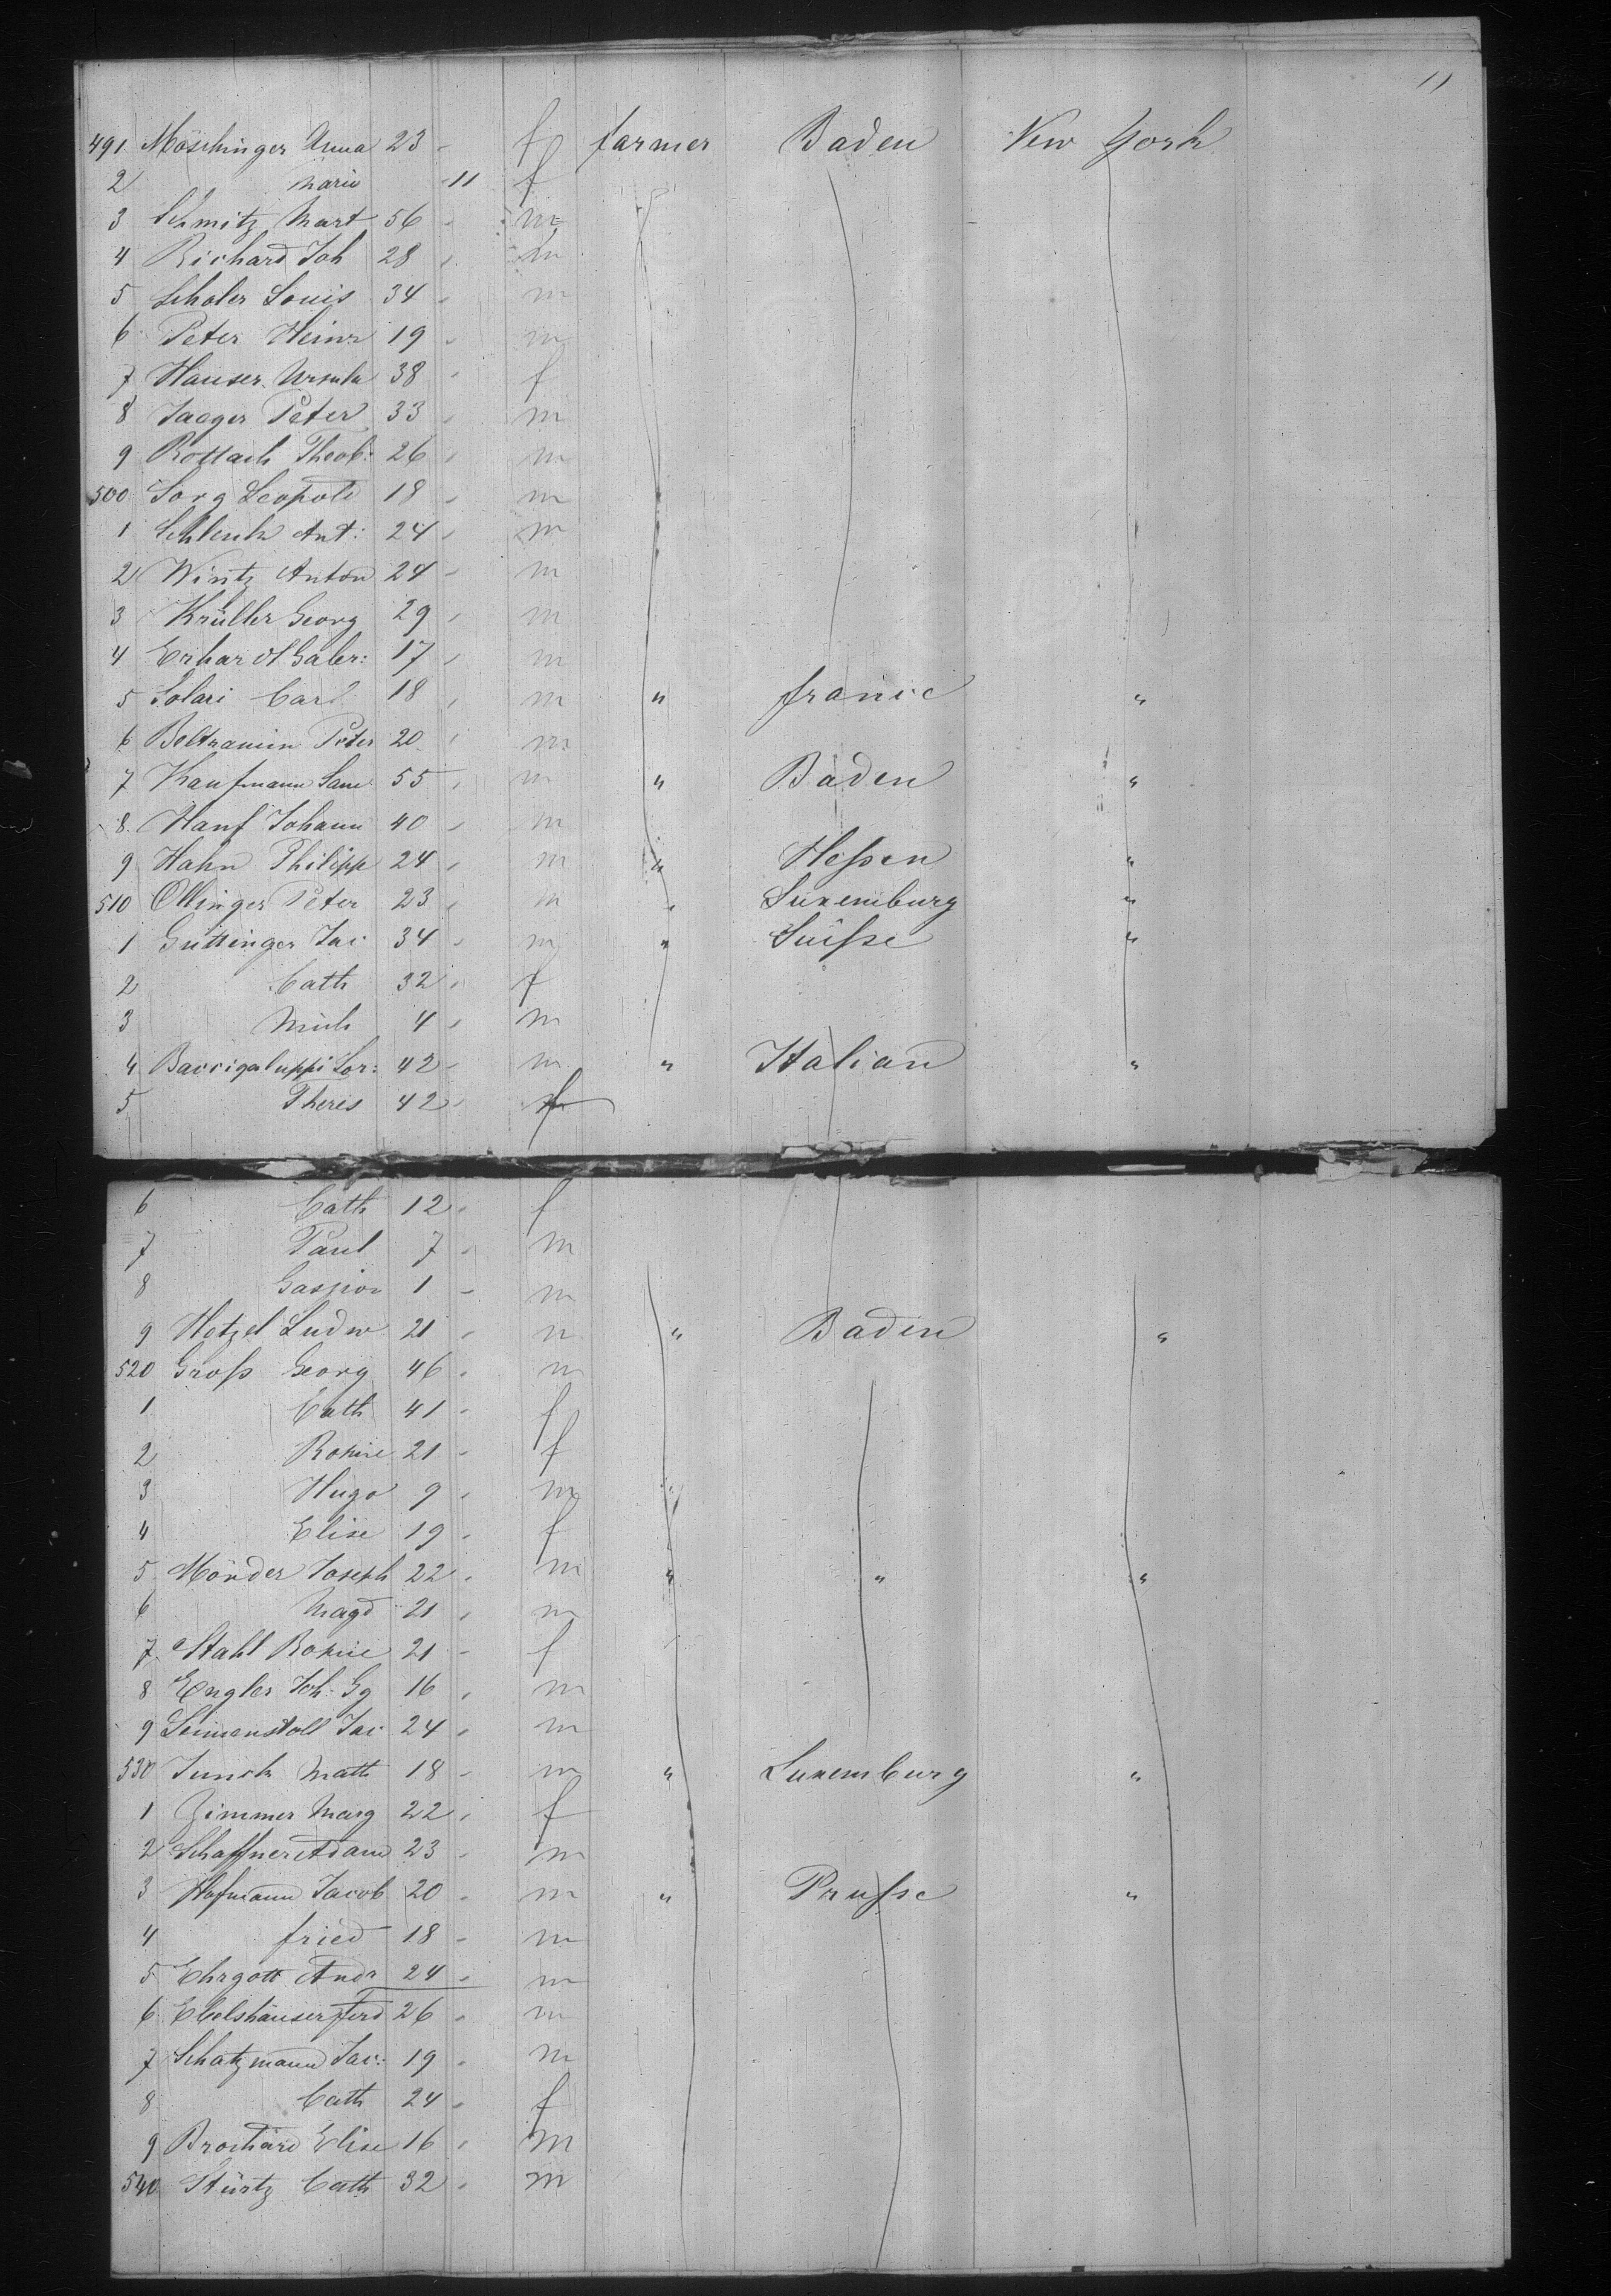 11
491 Möschinger Anna 23 - f farmer Baden New York
2 Marie 11 f
3 Schmitz Mart 56 m
4 Richard Joh 28 m
5 Scholer Louis 34 m
6 Peter Heinr 19 m
7 Hauser Ursula 38 f
8 Jaeger Peter 33 m
9 Rottach Theob: 26 m
500 Sorg Leopold 18 m
1 Schlenk Ant: 24 m
2 Wintz Anton 24 m
3 Krüller Georg 29 m
4 Erhardt Gabr: 17 m
5 Solari Carl 18 m " france "
6 Beltramin Peter 20 m
7 Kaufmann Sam 55 m " Baden "
8 Hanf Johann 40 m
9 Hahn Philipp 24 m " Heſsen "
510 Ollinger Peter 23 m " Luxemburg "
1 Guttinger Jac 34 m " Suiſse "
2 Cath 32 f
3 Mich 4 m
4 Baccigaluppi Lor: 42 m " Italian "
5 Theres 42 f
6 Cath 12 f
7 Paul 7 m
8 Gaspior 1 - m
9 Hotzel Ludw 21 m " Baden "
520 Groſs Georg 46 m
1 Cath 41 f
2 Rosine 21 - f
3 Hugo 9 m
4 Elise 19 - f
5 Mönder Joseph 22 m " " "
6 Magd 21 m
7 Stahl Rosine 21 - f
8 Engler Joh: Gg 16 m
9 Leimenstoll Jac 24 m
530 Junck Math 18 - m " Luxemburg "
1 Zimmer Marg 22 f
2 Schaffner Adam 23 m
3 Hofmann Jacob 20 m " Pruſse "
4 fried 18 - m
5 Ehrgott Andr 24 m
6 Ebelshäuser ferd 26 m
7 Schatzmann Jac: 19 m
8 Cath 24 f
9 Brochard Elise 16 m
540 Stürtz Cath 32 m